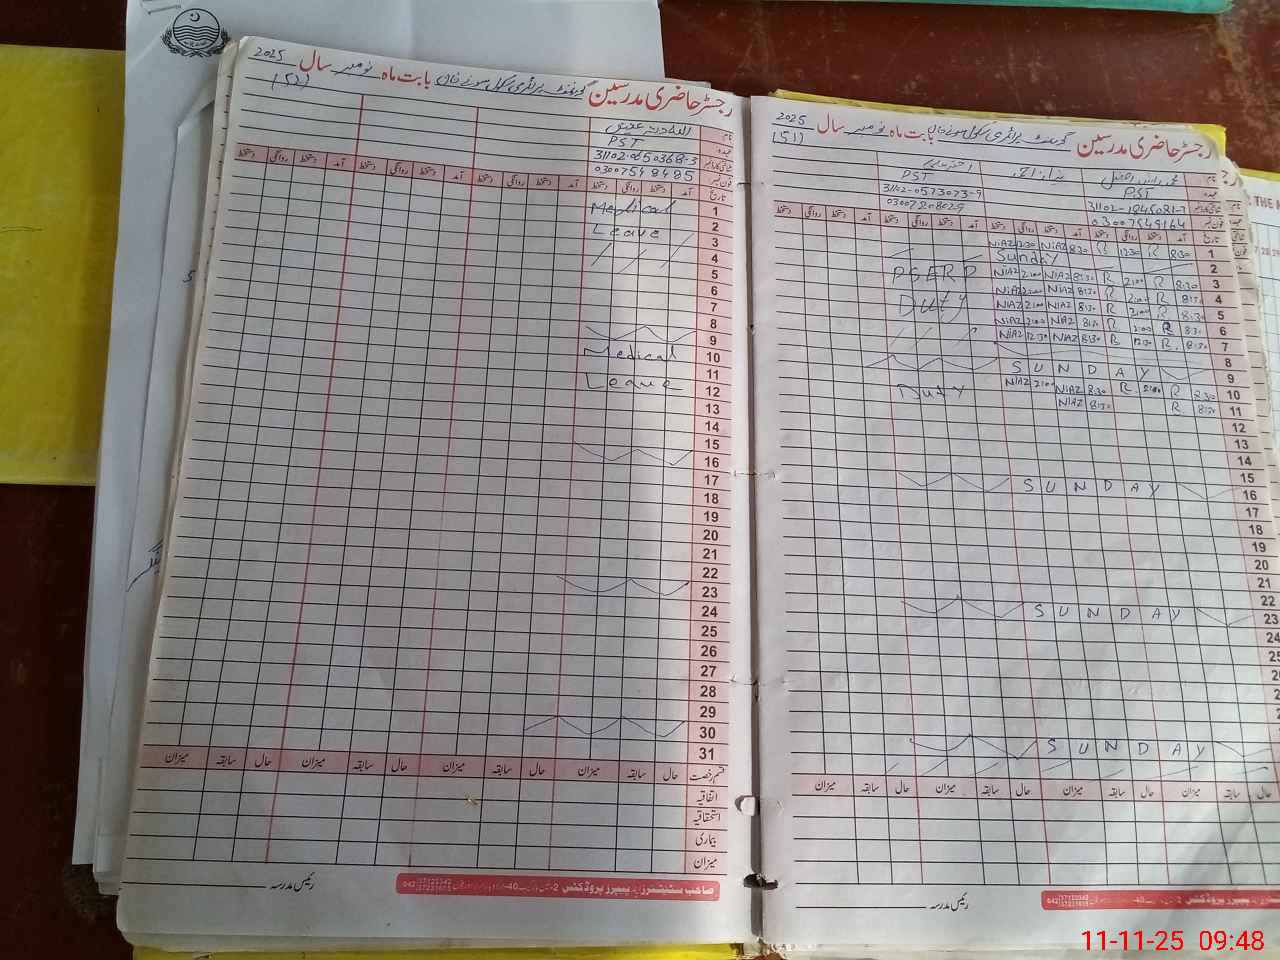 رجسٹر حاضری مدرسین گورنمنٹ پرائمری سکول بابت ماہ نومبر سال 2025
(52)
نام
عہدہ PST
شناختی کارڈ نمبر 31102-0650368-3
فون نمبر 03007548485
تاریخ آمد دستخط روانگی دستخط آمد دستخط روانگی دستخط آمد دستخط روانگی دستخط آمد دستخط روانگی دستخط
1 Medical
2 Leave
3
4
5
6
7
8
9
10 Medical
11
12 Leave
13
14
15
16
17
18
19
20
21
22
23
24
25
26
27
28
29
30
31
قسم رخصت حال سابقہ میزان حال سابقہ میزان حال سابقہ میزان حال سابقہ میزان
اتفاقیہ
استحقاقیہ
بیماری
میزان
رئیس مدرسہ
صاحب سٹیشنرز اینڈ پیپرز پروڈکٹس
رجسٹر حاضری مدرسین گورنمنٹ پرائمری سکول بابت ماہ نومبر سال 2025
(51)
نام نیاز احمد
عہدہ PST PST
31102-1845081-7 31102-0573073-9
03007549164 03007208029
تاریخ آمد دستخط روانگی دستخط آمد دستخط روانگی دستخط آمد دستخط روانگی دستخط آمد دستخط روانگی دستخط
1 8:30 R 12:30 R 8:30 NiAZ 12:30 NiAZ
2 Sunday
3 8:30 R 2:00 R 8:30 NiAZ 2:00 NiAZ PSERP
4 8:30 R 2:00 R 8:30 NiAZ 2:00 NiAZ Duty
5 8:30 R 2:00 R 8:30 NiAZ 2:00 NiAZ
6 8:30 R 2:00 R 8:30 NiAZ 2:00 NiAZ
7 8:30 R 12:30 R 8:30 NiAZ 12:30 NiAZ
8
9 SUNDAY
10 8:30 R 2:00 R 8:30 NiAZ 2:00 NiAZ Duty
11 8:30 R 8:30 NiAZ
12
13
14
15
16 SUNDAY
17
18
19
20
21
22
23 SUNDAY
24
25
SUNDAY
حال سابقہ میزان حال سابقہ میزان حال سابقہ میزان حال سابقہ میزان
رئیس مدرسہ
پیپرز پروڈکٹس
THE
11-11-25 09:48